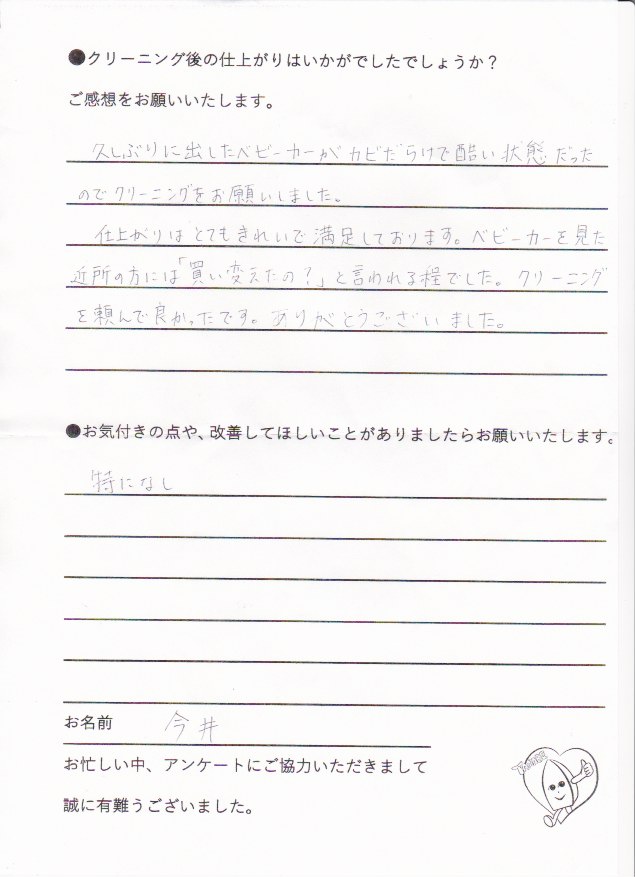 ●クリーニング後の仕上がりはいかがでしたでしょうか？
ご感想をお願いいたします。
久しぶりに出したベビーカーがカビだらけで酷い状態だった
のでクリーニングをお願いしました。
仕上がりはとてもきれいで満足しております。ベビーカーを見た
近所の方には「買い変えたの？」と言われる程でした。クリーニング
を頼んで良かったです。ありがとうございました。
●お気付きの点や、改善してほしいことがありましたらお願いいたします。
特になし
お名前 今井
お忙しい中、アンケートにご協力いただきまして
誠に有難うございました。